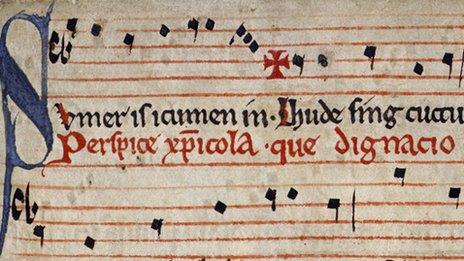 Svmer is icumen in· Lhude sing cuccu
Perspice xp̄icola· que dignacio